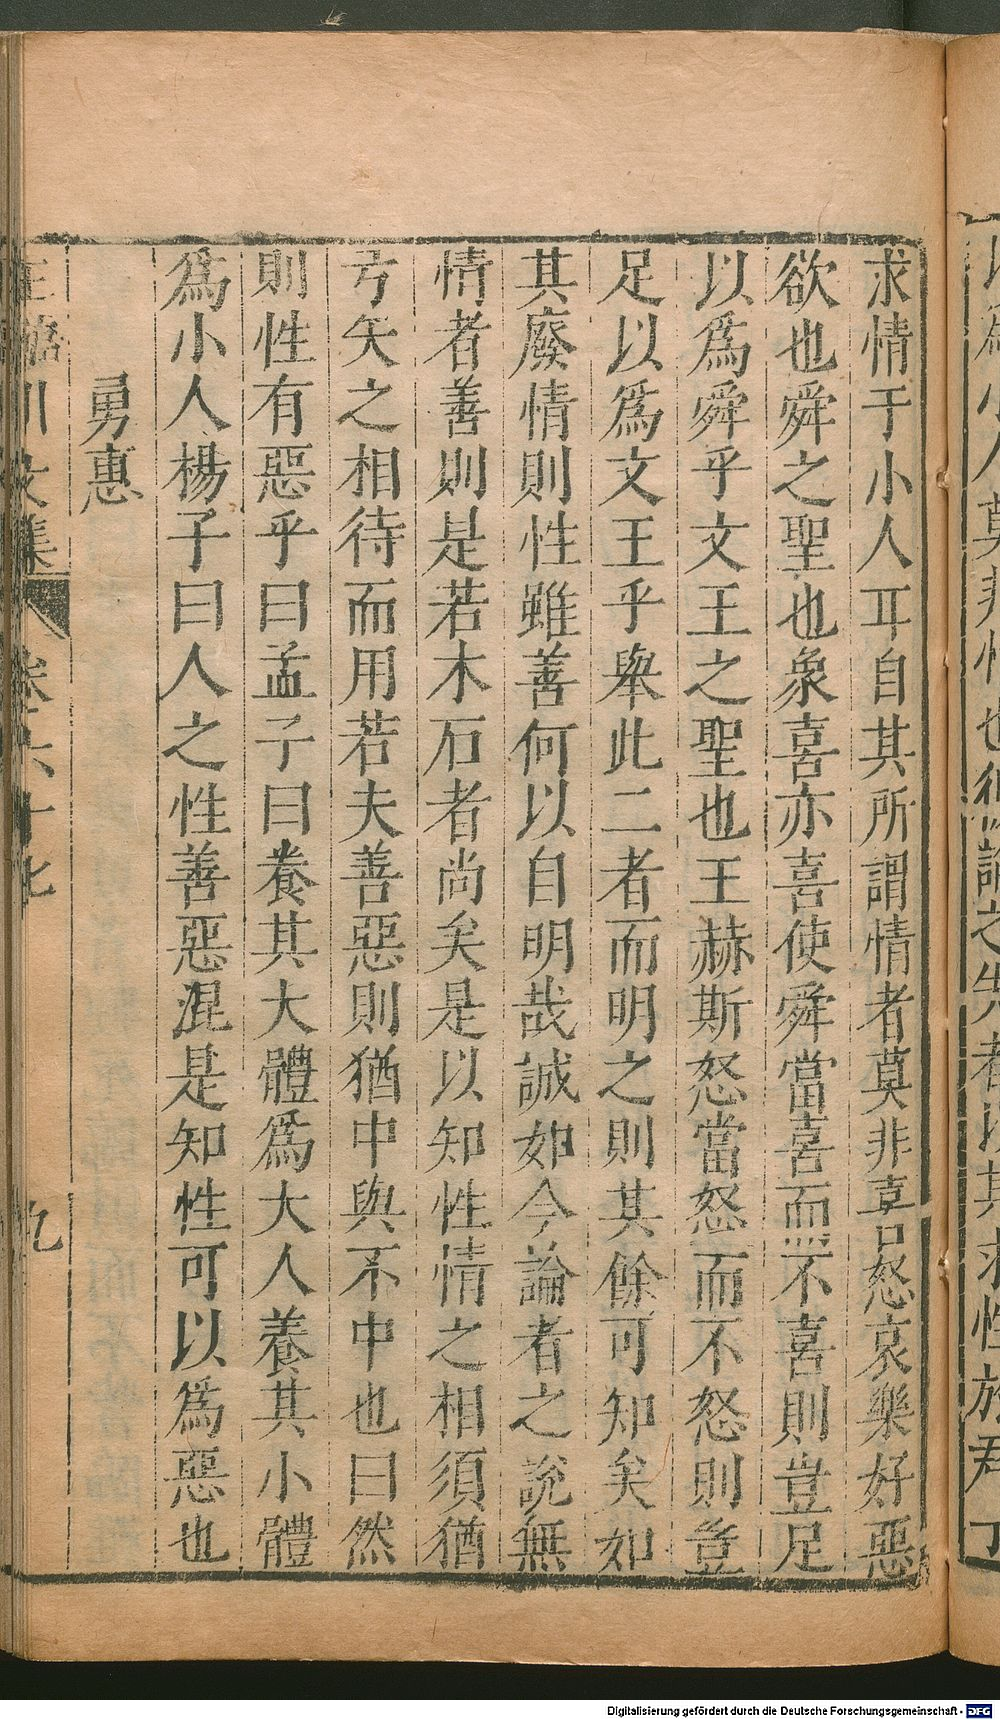 求情于小人耳自其所謂情者莫非喜怒哀樂好惡
欲也舜之聖也象喜亦喜使舜當喜而不喜則豈足
以爲舜乎文王之聖也王赫斯怒當怒而不怒則豈
足以爲文王乎舉此二者而明之則其餘可知矣如
其廢情則性雖善何以自明哉誠如今論者之說無
情者善則是若木石者尚矣是以知性情之相須猶
弓矢之相待而用若夫善惡則猶中與不中也曰然
則性有惡乎曰孟子曰養其大體爲大人養其小體
爲小人楊子曰人之性善惡混是知性可以爲惡也
勇惠
王臨川文集 卷六十七 九
Digitalisierung gefördert durch die Deutsche Forschungsgemeinschaft - DFG